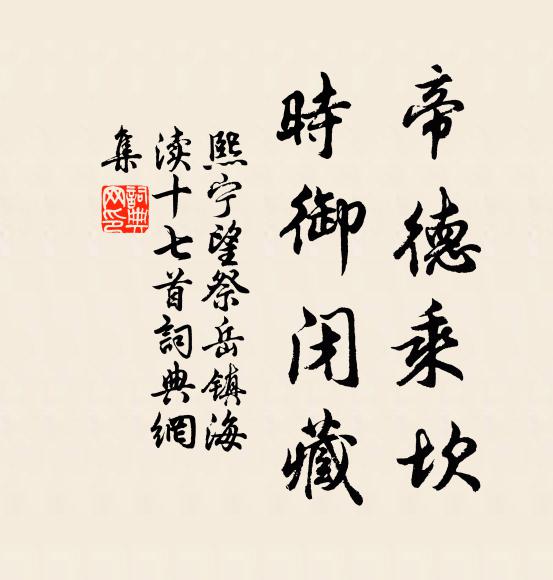 帝德乘坎
時御閉藏
熙宁望祭岳镇海
渎十七首詞典網
集
詞典網印